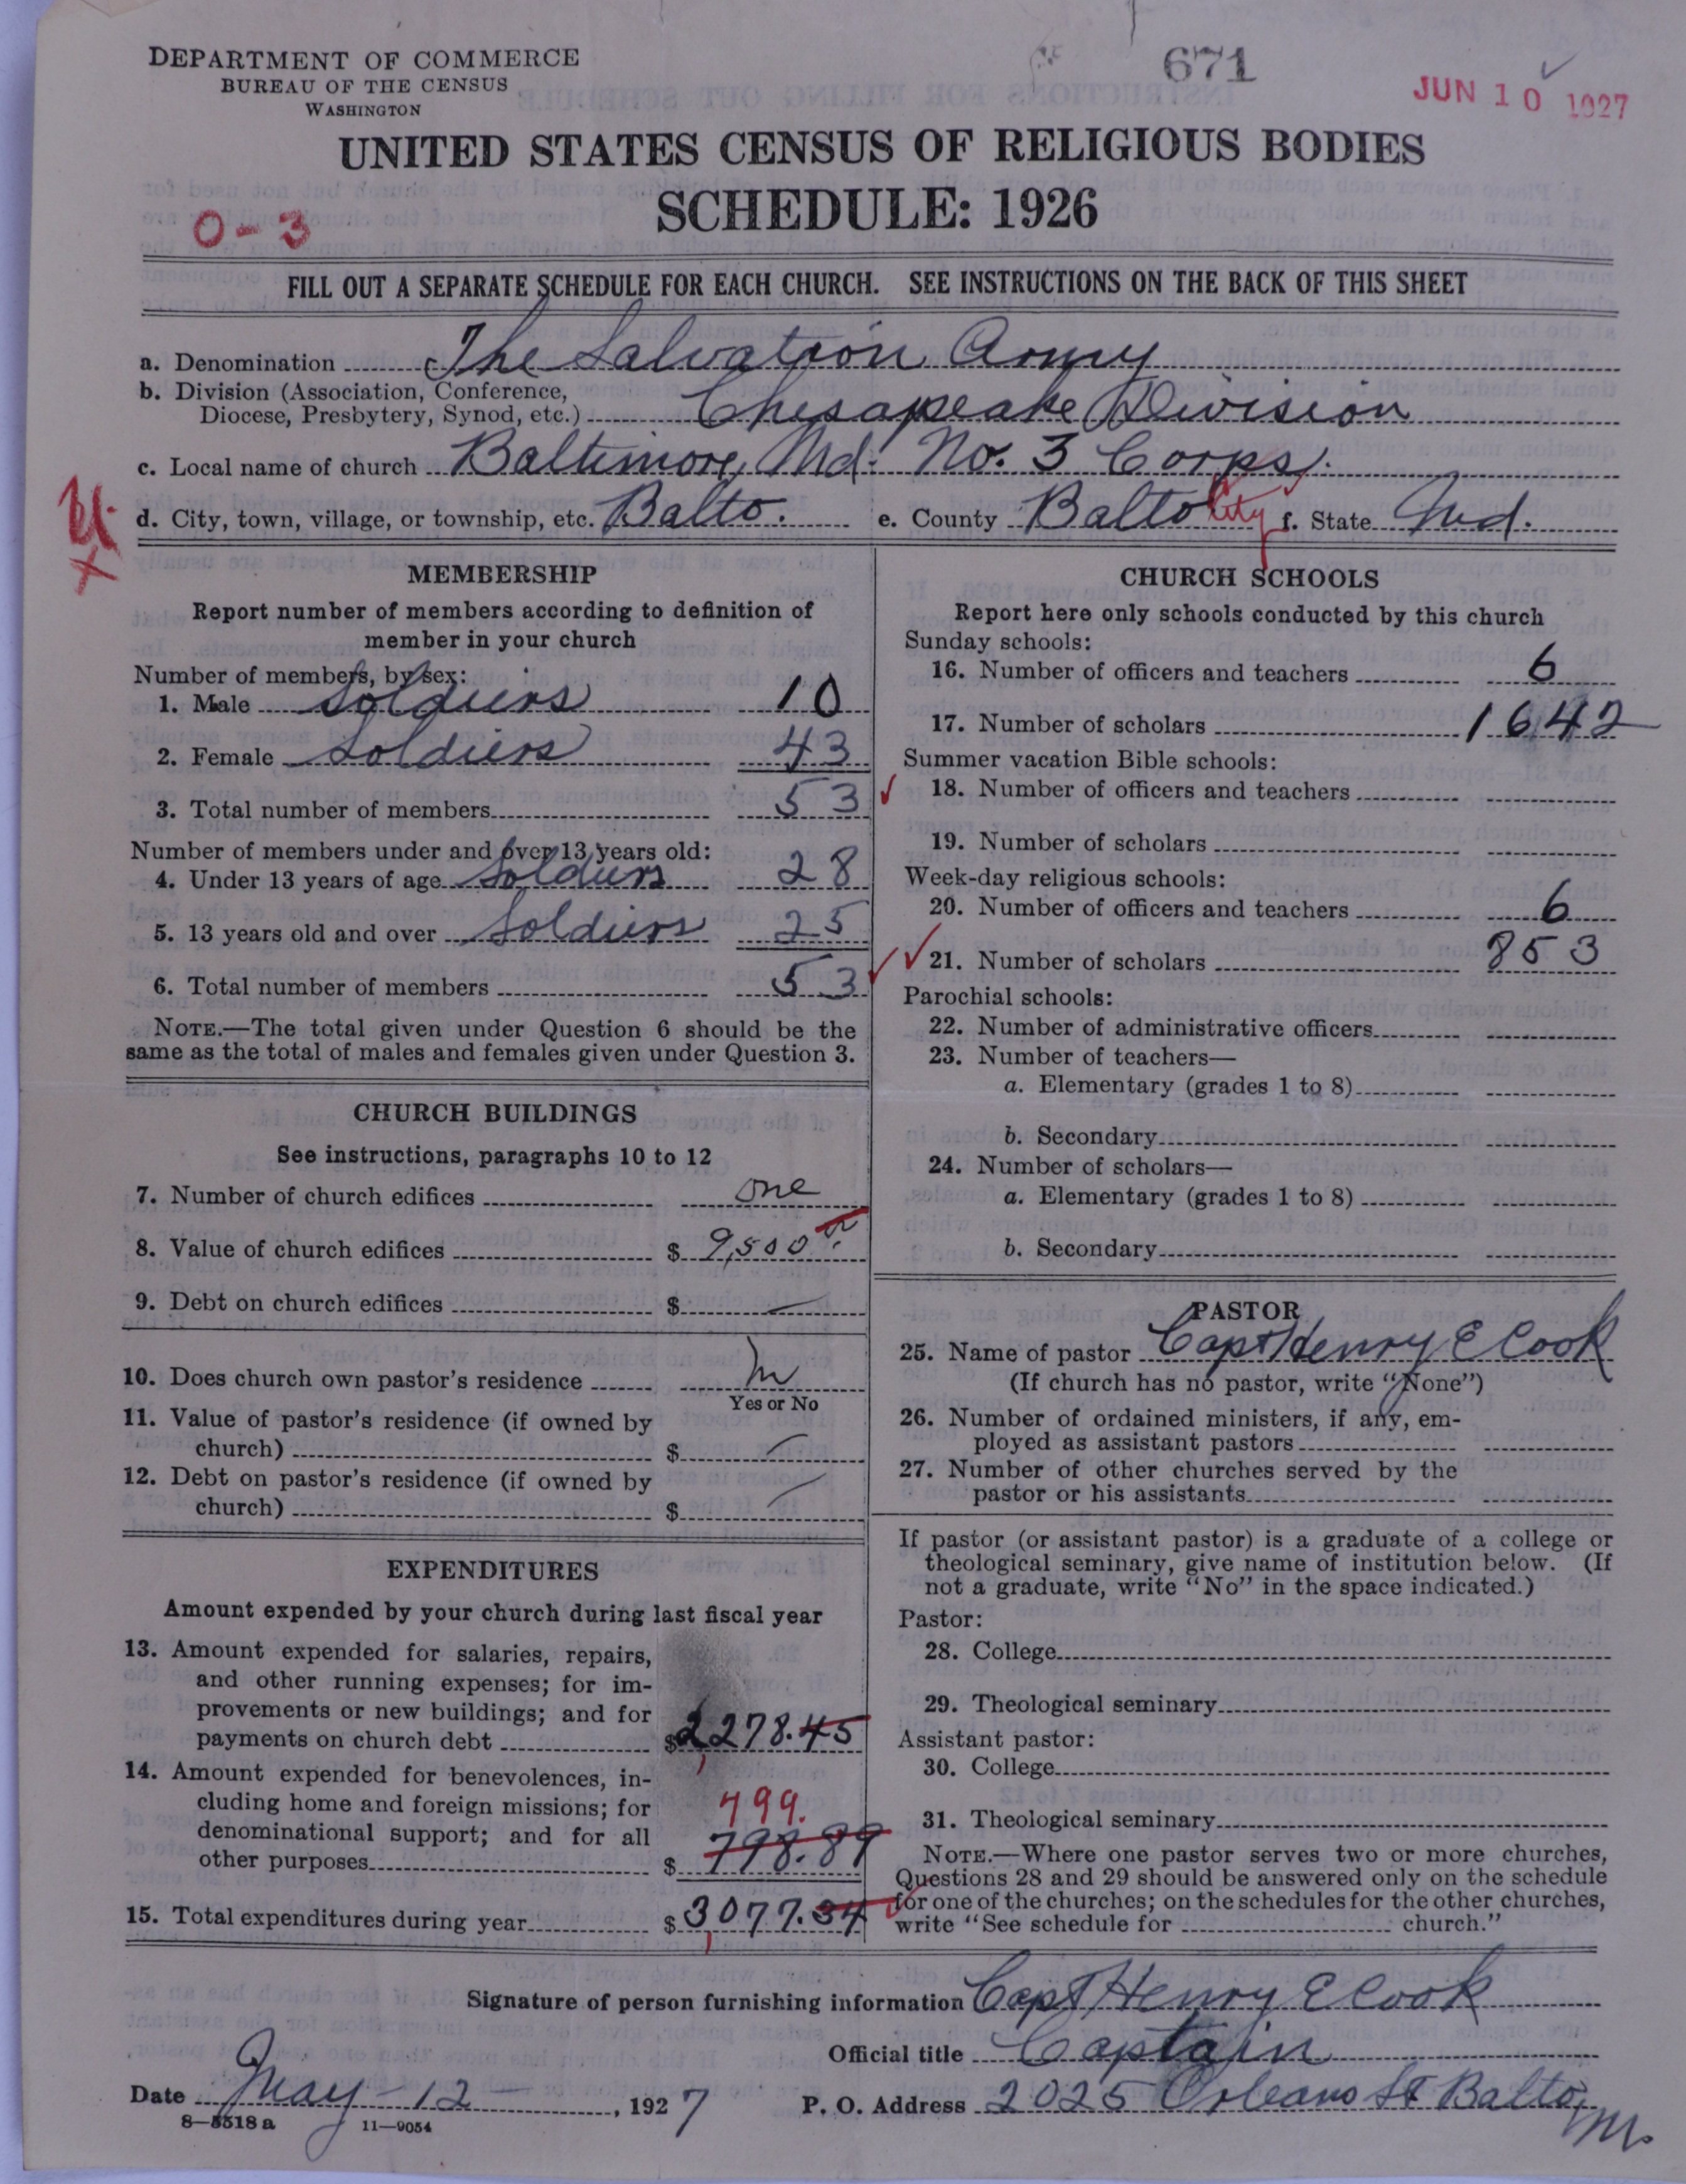 DEPARTMENT OF COMMERCE
BUREAU OF THE CENSUS
WASHINGTON
671
JUN 10 1927
UNITED STATES CENSUS OF RELIGIOUS BODIES
SCHEDULE: 1926
0-3
FILL OUT A SEPARATE SCHEDULE FOR EACH CHURCH. SEE INSTRUCTIONS ON THE BACK OF THIS SHEET
a. Denomination The Salvation Army
b. Division (Association, Conference,
Diocese, Presbytery, Synod, etc.) Chesapeake Division
c. Local name of church Baltimore, Md. No. 3 Corps.
d. City, town, village, or township, etc. Balto. e. County Balto City f. State Md.
MEMBERSHIP
Report number of members according to definition of
member in your church
Number of members, by sex:
1. Male Soldiers 10
2. Female Soldiers 43
3. Total number of members 53
Number of members under and over 13 years old:
4. Under 13 years of age Soldiers 28
5. 13 years old and over Soldiers 25
6. Total number of members 53
NOTE.—The total given under Question 6 should be the
same as the total of males and females given under Question 3.
CHURCH BUILDINGS
See instructions, paragraphs 10 to 12
7. Number of church edifices one
8. Value of church edifices $ 9,500
9. Debt on church edifices $ —
10. Does church own pastor's residence
Yes or No
11. Value of pastor's residence (if owned by
church) $ —
12. Debt on pastor's residence (if owned by
church) $ —
EXPENDITURES
Amount expended by your church during last fiscal year
13. Amount expended for salaries, repairs,
and other running expenses; for im-
provements or new buildings; and for
payments on church debt $ 2,278.45
14. Amount expended for benevolences, in-
cluding home and foreign missions; for 799.
denominational support; and for all
other purposes $ 798.89
15. Total expenditures during year $ 3,077.34
CHURCH SCHOOLS
Report here only schools conducted by this church
Sunday schools:
16. Number of officers and teachers 6
17. Number of scholars 1642
Summer vacation Bible schools:
18. Number of officers and teachers
19. Number of scholars
Week-day religious schools:
20. Number of officers and teachers 6
21. Number of scholars 853
Parochial schools:
22. Number of administrative officers
23. Number of teachers—
a. Elementary (grades 1 to 8)
b. Secondary
24. Number of scholars—
a. Elementary (grades 1 to 8)
b. Secondary
PASTOR
25. Name of pastor Capt Henry E Cook
(If church has no pastor, write "None")
26. Number of ordained ministers, if any, em-
ployed as assistant pastors
27. Number of other churches served by the
pastor or his assistants
If pastor (or assistant pastor) is a graduate of a college or
theological seminary, give name of institution below. (If
not a graduate, write "No" in the space indicated.)
Pastor:
28. College
29. Theological seminary
Assistant pastor:
30. College
31. Theological seminary
NOTE.—Where one pastor serves two or more churches,
Questions 28 and 29 should be answered only on the schedule
for one of the churches; on the schedules for the other churches,
write "See schedule for church."
Signature of person furnishing information Capt Henry E Cook
Official title Captain
Date May-12-, 1927 P. O. Address 2025 Orleans St Balto, M.
8—5518 a 11—9054